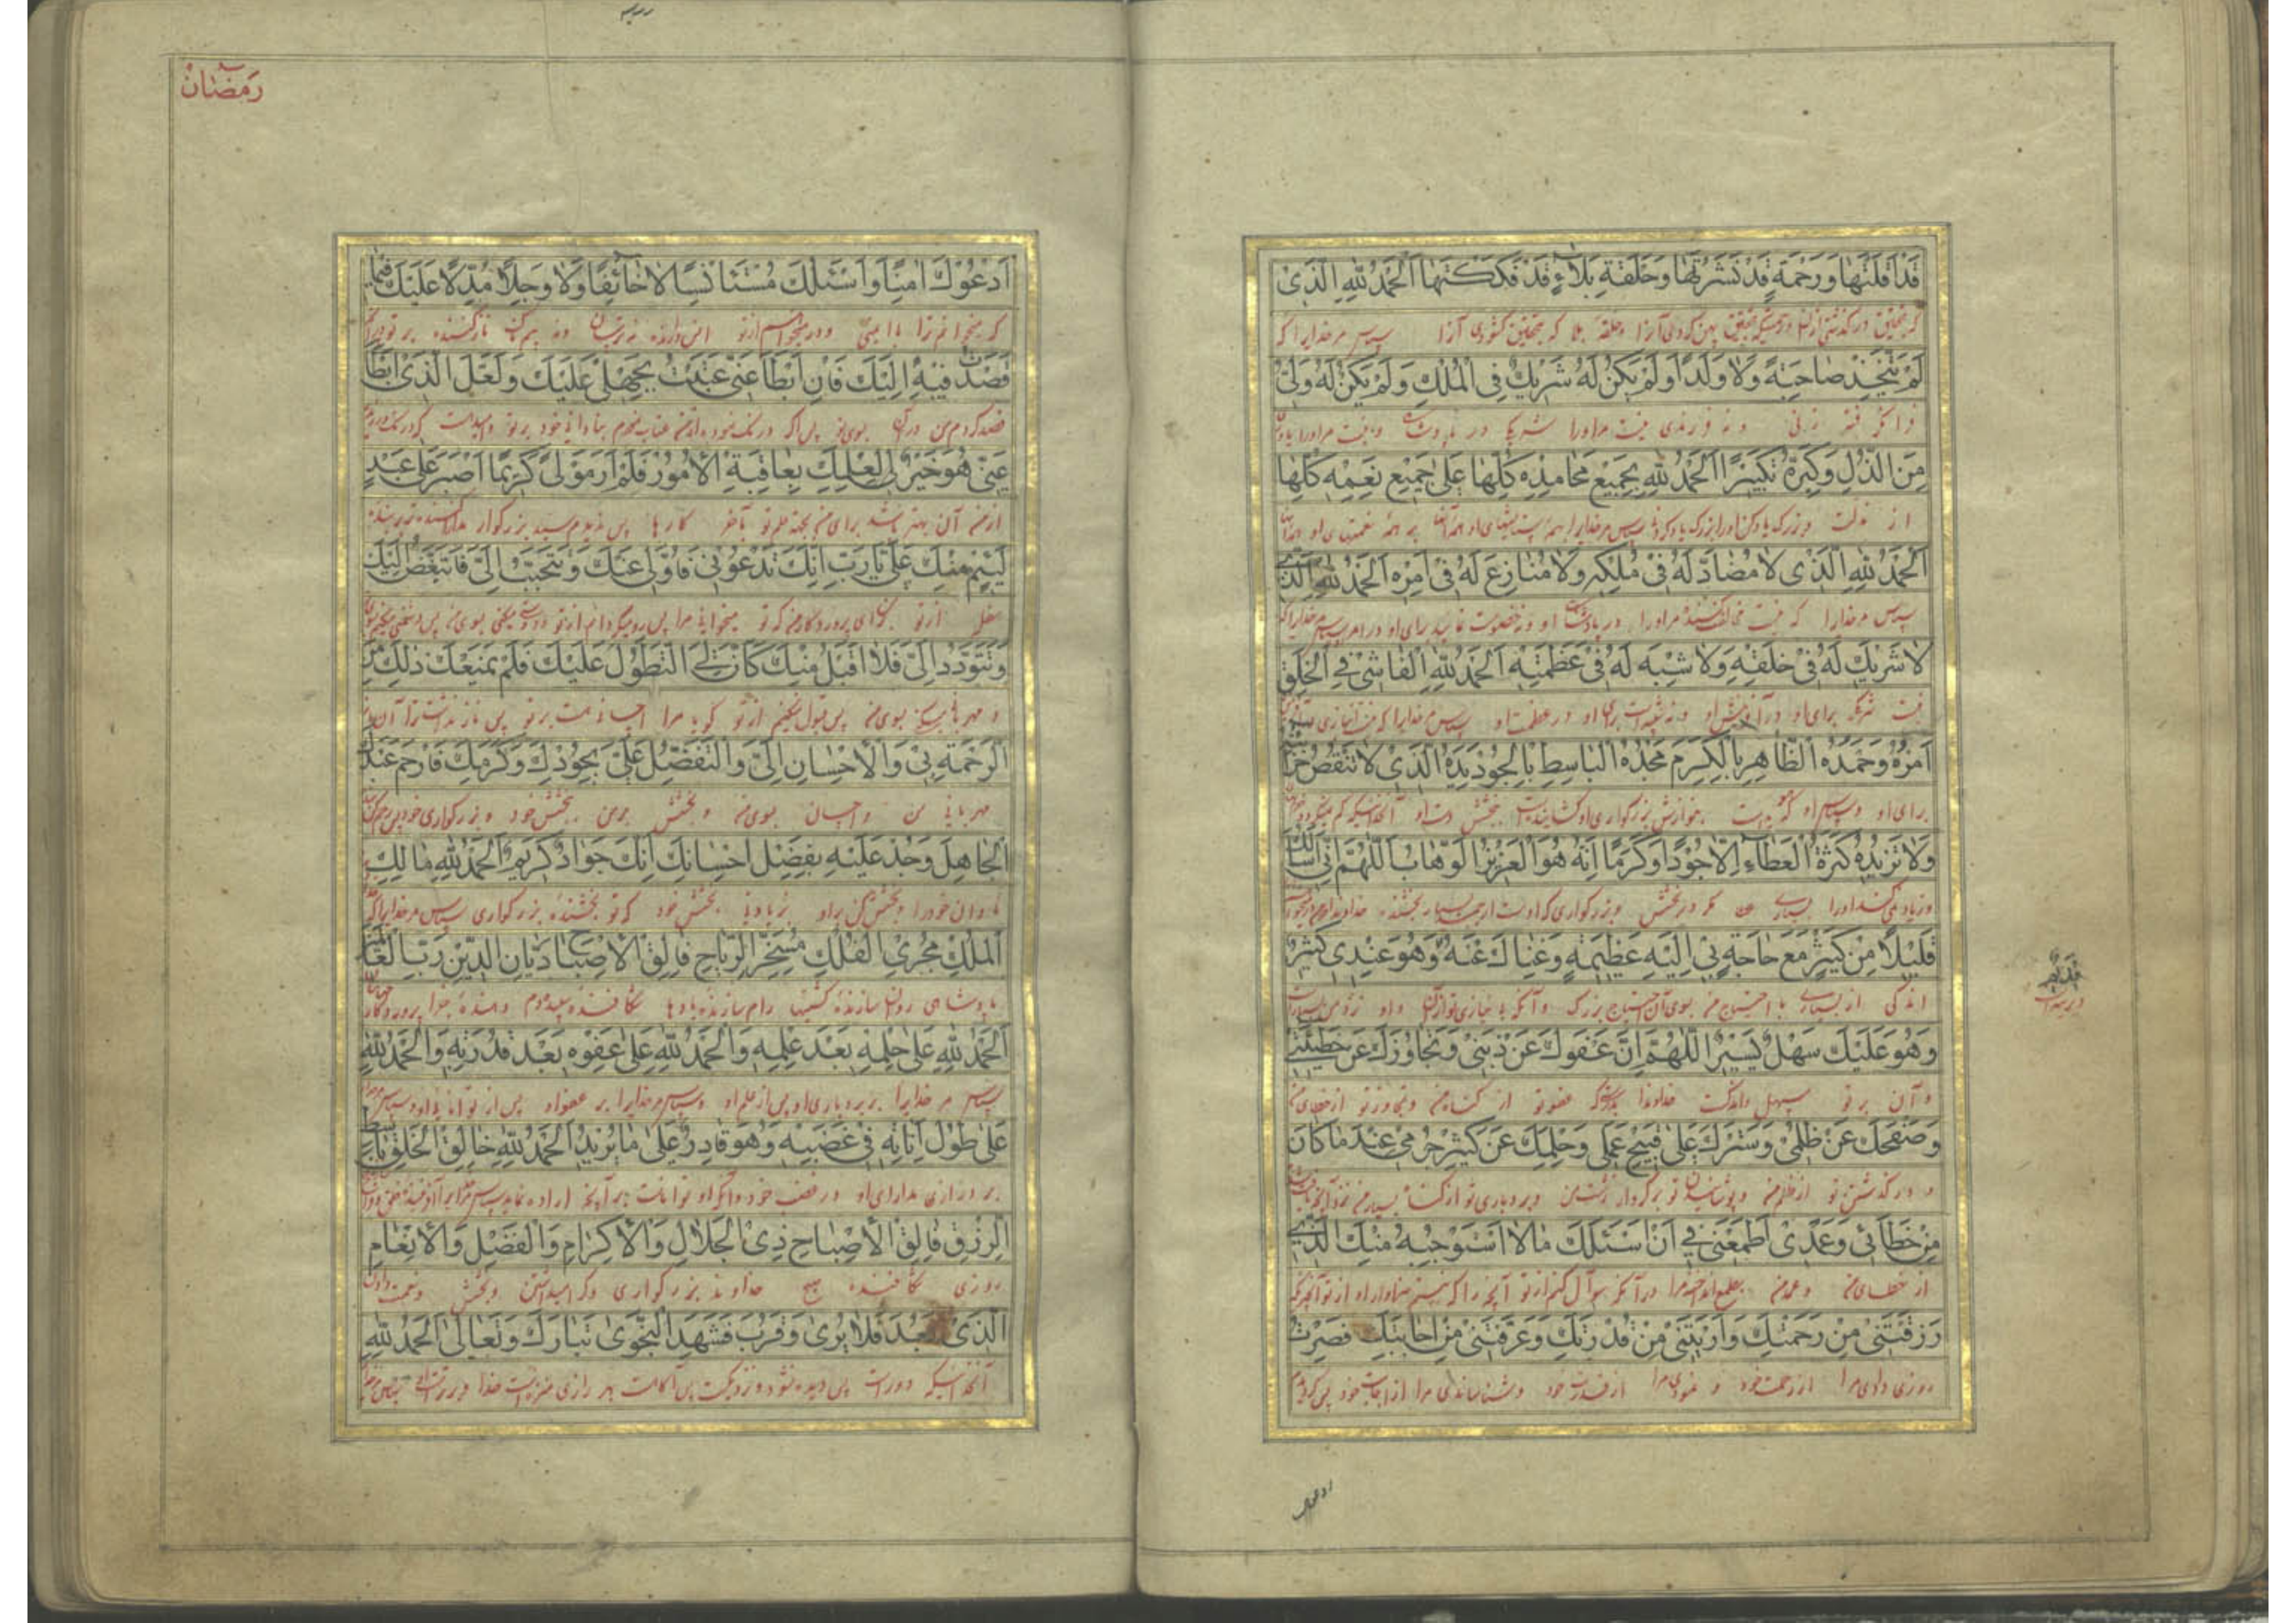 قَدْ اَقَلْتَهٰا وَرَحْمَةٍ قَدْ نَشَرْتَهٰا وَحَلْقَةِ بَلٰاءٍ قَدْ فَكَكْتَهٰا اَلْحَمْدُ لِلّٰهِ الَّذى
که بتحقیق درگذشتی از لغزش بتحقیق پهن کرده آنرا و حلقه بلا که بتحقیق گشودی آنرا سپاس مر خدایرا که
لَمْ يَتَّخِذْ صٰاحِبَةً وَلٰا وَلَدًا وَلَمْ يَكُنْ لَهُ شَريكٌ فِى الْمُلْكِ وَلَمْ يَكُنْ لَهُ وَلِىٌّ
فرا نگرفته زنی و نه فرزندی نیست مر اورا شریک در پادشاهی و نیست مر اورا
مِنَ الذُّلِّ وَكَبِّرْهُ تَكْبيرًا اَلْحَمْدُ لِلّٰهِ بِجَميعِ مَحٰامِدِهِ كُلِّهٰا عَلىٰ جَميعِ نِعَمِهِ كُلِّهٰا
از مذلت و بزرک یاد کن اورا بزرک یاد کردنی سپاس مر خدایرا بهمه ستایشهای او همه آنها بر همه نعمتهای او
اَلْحَمْدُ لِلّٰهِ الَّذى لٰا مُضٰادَّ لَهُ فى مُلْكِهِ وَلٰا مُنٰازِعَ لَهُ فى اَمْرِهِ اَلْحَمْدُ لِلّٰهِ الَّذى
سپاس مر خدایرا که نیست مخالفت کننده مر اورا در پادشاهی او و نه خصومت نماینده برای او در امر سپاس خدایرا که
لٰا شَريكَ لَهُ فى خَلْقِهِ وَلٰا شَبيهَ لَهُ فى عَظَمَتِهِ اَلْحَمْدُ لِلّٰهِ الْفٰاشى فِى الْخَلْقِ
نیست شریک برای او در آفرینش او و نه شبیه است برای او در عظمت او سپاس مر خدایرا که
اَمْرُهُ وَحَمْدُهُ الظّٰاهِرِ بِالْكَرَمِ مَجْدُهُ الْبٰاسِطِ بِالْجُودِ يَدَهُ الَّذى لٰا تَنْقُصُ خَزٰائِنُهُ
برای او و سپاس او بزرگواری او گشاینده است ببخشش دست او آنخدائیکه کم نمیگردد
وَلٰا تَزيدُهُ كَثْرَةُ الْعَطٰاءِ اِلّٰا جُودًا وَكَرَمًا اِنَّهُ هُوَ الْعَزيزُ الْوَهّٰابُ اَللّٰهُمَّ اِنّى اَسْئَلُكَ
و زیاد نمی کند اورا بسیاری عطا مگر در بخشش و بزرگواری که اوست ارجمند بسیار بخشنده
قَليلًا مِنْ كَثيرٍ مَعَ حٰاجَةٍ بى اِلَيْهِ عَظيمَةٍ وَغِنٰاكَ عَنْهُ وَهُوَ عِنْدى كَثيرٌ
اندکی از بسیاری با احتیاج من بسوی آن احتیاج بزرک و آنکه بی نیازی تو از آن و او نزد من بسیار است
وَهُوَ عَلَيْكَ سَهْلٌ يَسيرٌ اَللّٰهُمَّ اِنَّ عَفْوَكَ عَنْ ذَنْبى وَتَجٰاوُزَكَ عَنْ خَطيئَتى
و آن بر تو سهل و اندکست خداوندا بدرستیکه عفو تو از گناه من و تجاوز تو از خطای من
وَصَفْحَكَ عَنْ ظُلْمى وَسَتْرَكَ عَلىٰ قَبيحِ عَمَلى وَحِلْمَكَ عَنْ كَثيرِ جُرْمى عِنْدَ مٰا كٰانَ
و درگذشتن تو از ظلم من و پوشانیدن تو بر کردار زشت من و بردباری تو از گناه بسیار من نزد آنچه
مِنْ خَطٰائى وَعَمْدى اَطْمَعَنى فى اَنْ اَسْئَلَكَ مٰا لٰا اَسْتَوْجِبُهُ مِنْكَ الَّذى
از خطای من و عمد من بطمع انداخت مرا در آنکه سؤال کنم از تو آنچه را که نیستم سزاوار او از تو آنچه
رَزَقْتَنى مِنْ رَحْمَتِكَ وَاَرَيْتَنى مِنْ قُدْرَتِكَ وَعَرَّفْتَنى مِنْ اِجٰابَتِكَ فَصِرْتُ
روزی دادی مرا از رحمت خود و نمودی مرا از قدرت خود و شناساندی مرا از اجابت خود پس گردیدم
قَديمٌ
ادعوك
رَمَضٰانْ
اَدْعُوكَ اٰمِنًا وَاَسْئَلُكَ مُسْتَأْنِسًا لٰا خٰائِفًا وَلٰا وَجِلًا مُدِلًّا عَلَيْكَ فيمٰا
که میخوانم ترا با ایمنی و در میخواهم از تو انس دارنده نه ترسان و نه بیمناک ناز کننده بر تو در آنچه
قَصَدْتُ فيهِ اِلَيْكَ فَاِنْ اَبْطَأَ عَنّى عَتَبْتُ بِجَهْلى عَلَيْكَ وَلَعَلَّ الَّذى اَبْطَأَ
قصد کردم من در آن بسوی تو پس اگر درنک نمود از من عتاب میکنم بنادانی خود بر تو و امید است که درنک
عَنّى هُوَ خَيْرٌ لى لِعِلْمِكَ بِعٰاقِبَةِ الْاُمُورِ فَلَمْ اَرَ مَوْلًى كَريمًا اَصْبَرَ عَلىٰ عَبْدٍ
از من آن بهتر باشد برای من بجهة علم تو بآخر کارها پس ندیدم سید بزرگوار
لَئيمٍ مِنْكَ عَلَىَّ يٰا رَبِّ اِنَّكَ تَدْعُونى فَاُوَلّى عَنْكَ وَتَتَحَبَّبُ اِلَىَّ فَاَتَبَغَّضُ اِلَيْكَ
از تو بمن ای پروردگار من که تو میخوانی مرا پس رو میگردانم از تو و دوستی میکنی بسوی من پس دشمنی میکنم
وَتَتَوَدَّدُ اِلَىَّ فَلٰا اَقْبَلُ مِنْكَ كَاَنَّ لِىَ التَّطَوُّلَ عَلَيْكَ فَلَمْ يَمْنَعْكَ ذٰلِكَ مِنَ
و مهربانی میکنی بسوی من پس قبول نمیکنم از تو گویا مرا احسان و منت بر تو پس باز نداشت ترا آن
الرَّحْمَةِ بى وَالْاِحْسٰانِ اِلَىَّ وَالتَّفَضُّلِ عَلَىَّ بِجُودِكَ وَكَرَمِكَ فَارْحَمْ عَبْدَكَ
مهربانی بمن و احسان بسوی من و بخشش بر من ببخشش خود و بزرگواری خود پس رحم کن
الْجٰاهِلَ وَجُدْ عَلَيْهِ بِفَضْلِ اِحْسٰانِكَ اِنَّكَ جَوٰادٌ كَريمٌ اَلْحَمْدُ لِلّٰهِ مٰالِكِ
نادان خودرا و بخشش کن بر او بزیادتی بخشش خود که تو بخشنده بزرگواری سپاس مر خدایرا که
الْمُلْكِ مُجْرِى الْفُلْكِ مُسَخِّرِ الرِّيٰاحِ فٰالِقِ الْاِصْبٰاحِ دَيّٰانِ الدّينِ رَبِّ الْعٰالَمينَ
پادشاهی روان سازنده کشتیها رام سازنده بادها شکافنده سپیده دم دهنده جزا پروردگار جهانیان
اَلْحَمْدُ لِلّٰهِ عَلىٰ حِلْمِهِ بَعْدَ عِلْمِهِ وَالْحَمْدُ لِلّٰهِ عَلىٰ عَفْوِهِ بَعْدَ قُدْرَتِهِ وَالْحَمْدُ لِلّٰهِ
سپاس مر خدایرا بر بردباری او پس از علم او و سپاس مر خدایرا بر عفو او پس از توانائی او و سپاس
عَلىٰ طُولِ اَنٰاتِهِ فى غَضَبِهِ وَهُوَ قٰادِرٌ عَلىٰ مٰا يُريدُ اَلْحَمْدُ لِلّٰهِ خٰالِقِ الْخَلْقِ بٰاسِطِ
بر درازی مدارای او در غضب خود و آنکه او تواناست بر آنچه اراده نماید سپاس
الرِّزْقِ فٰالِقِ الْاِصْبٰاحِ ذِى الْجَلٰالِ وَالْاِكْرٰامِ وَالْفَضْلِ وَالْاِنْعٰامِ
روزی شکافنده صبح خداوند بزرگواری و گرامی داشتن و بخشش و نعمت دادن
الَّذى بَعُدَ فَلٰا يُرىٰ وَقَرُبَ فَشَهِدَ النَّجْوىٰ تَبٰارَكَ وَتَعٰالىٰ اَلْحَمْدُ لِلّٰهِ
آنخدائیکه دور است پس دیده نشود و نزدیکست پس آگاهست بر رازی منزه است خدا و برتر است سپاس